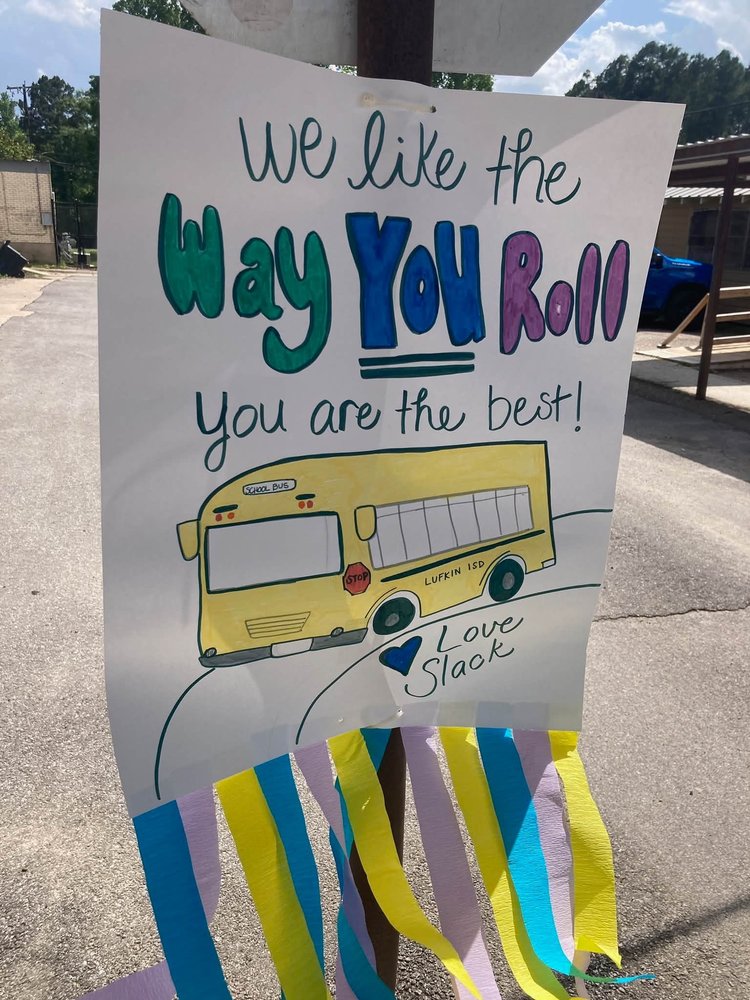 We like the
Way You Roll
You are the best!
SCHOOL BUS
STOP
LUFKIN ISD
Love
Slack